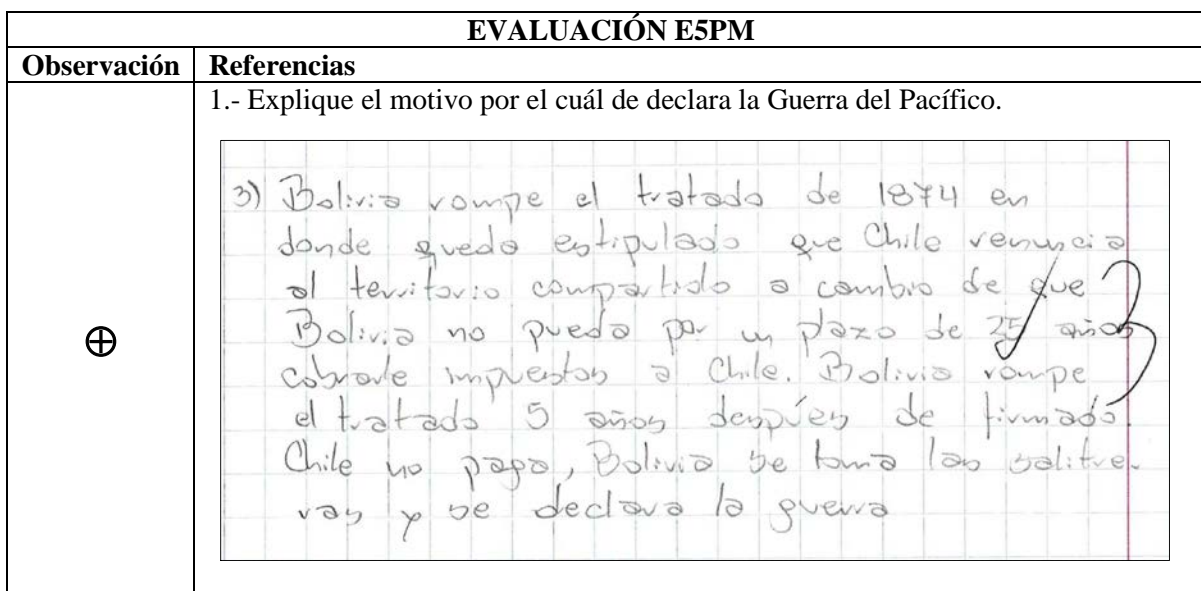 EVALUACIÓN E5PM
Observación Referencias
1.- Explique el motivo por el cuál de declara la Guerra del Pacífico.
3) Bolivia rompe el tratado de 1874 en
donde queda estipulado que Chile renuncia
al territorio compartido a cambio de que
Bolivia no pueda por un plazo de 25 años
cobrarle impuestos a Chile. Bolivia rompe
el tratado 5 años despúes de firmado.
Chile no paga, Bolivia se toma las salitre-
ras y se declara la guerra
3